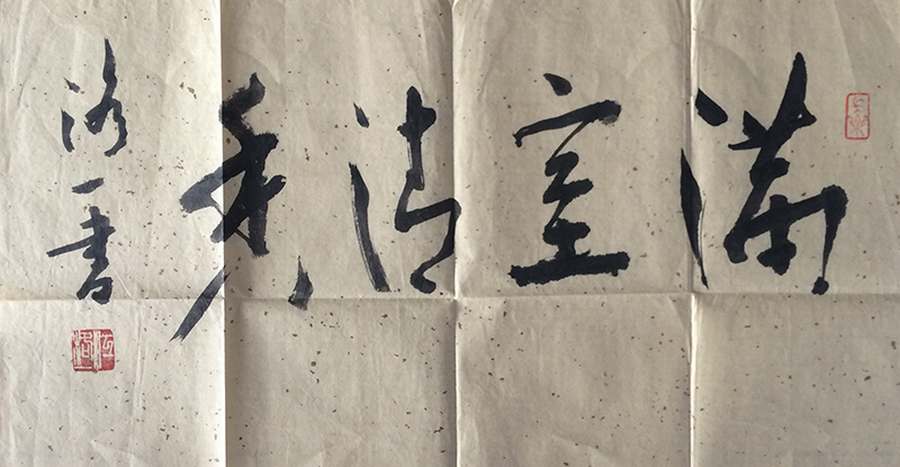 满室清香
洛一书